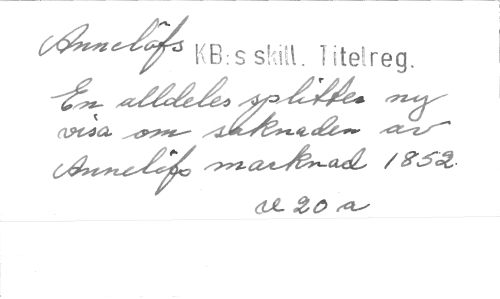 Annelöfs KB:s skill. Titelreg.
En alldeles splitter ny
visa om saknaden av
Annelöfs marknad 1852.
V 20 a